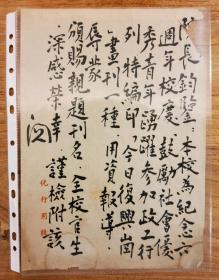 院長鈞鑒：本校為紀念六
週年校慶，鼓勵社會優
秀青年踴躍參加政工行
列，特編印「今日復興崗」
畫刊一種，用資報導，
辱蒙
頒賜親題刊名，全校官生
深感榮幸。謹檢附該